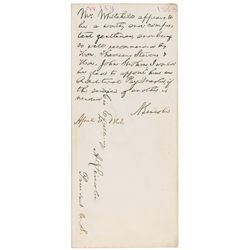 Mr. Whitehill appears to
be a worthy and compe-
tent gentleman, and being
so well recommended by
Hon. Thaddeus Stevens &
Hon. John I would
be glad to appoint him an
Additional Paymaster if
the service of another is
needed
A. Lincoln
April 1862
A. Lincoln
President U.S.